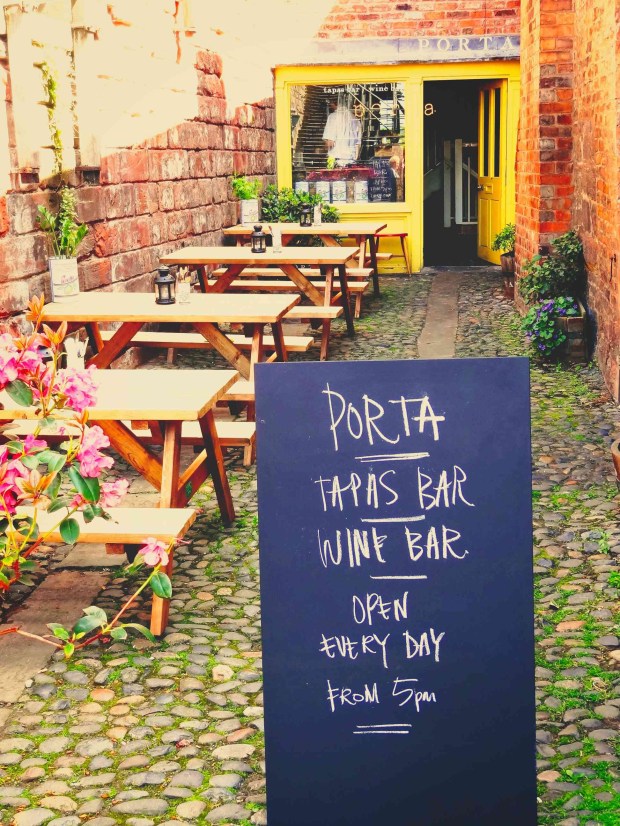 PORTA
tapas bar / wine bar
PORTA
TAPAS BAR
WINE BAR
OPEN
EVERY DAY
FROM 5pm